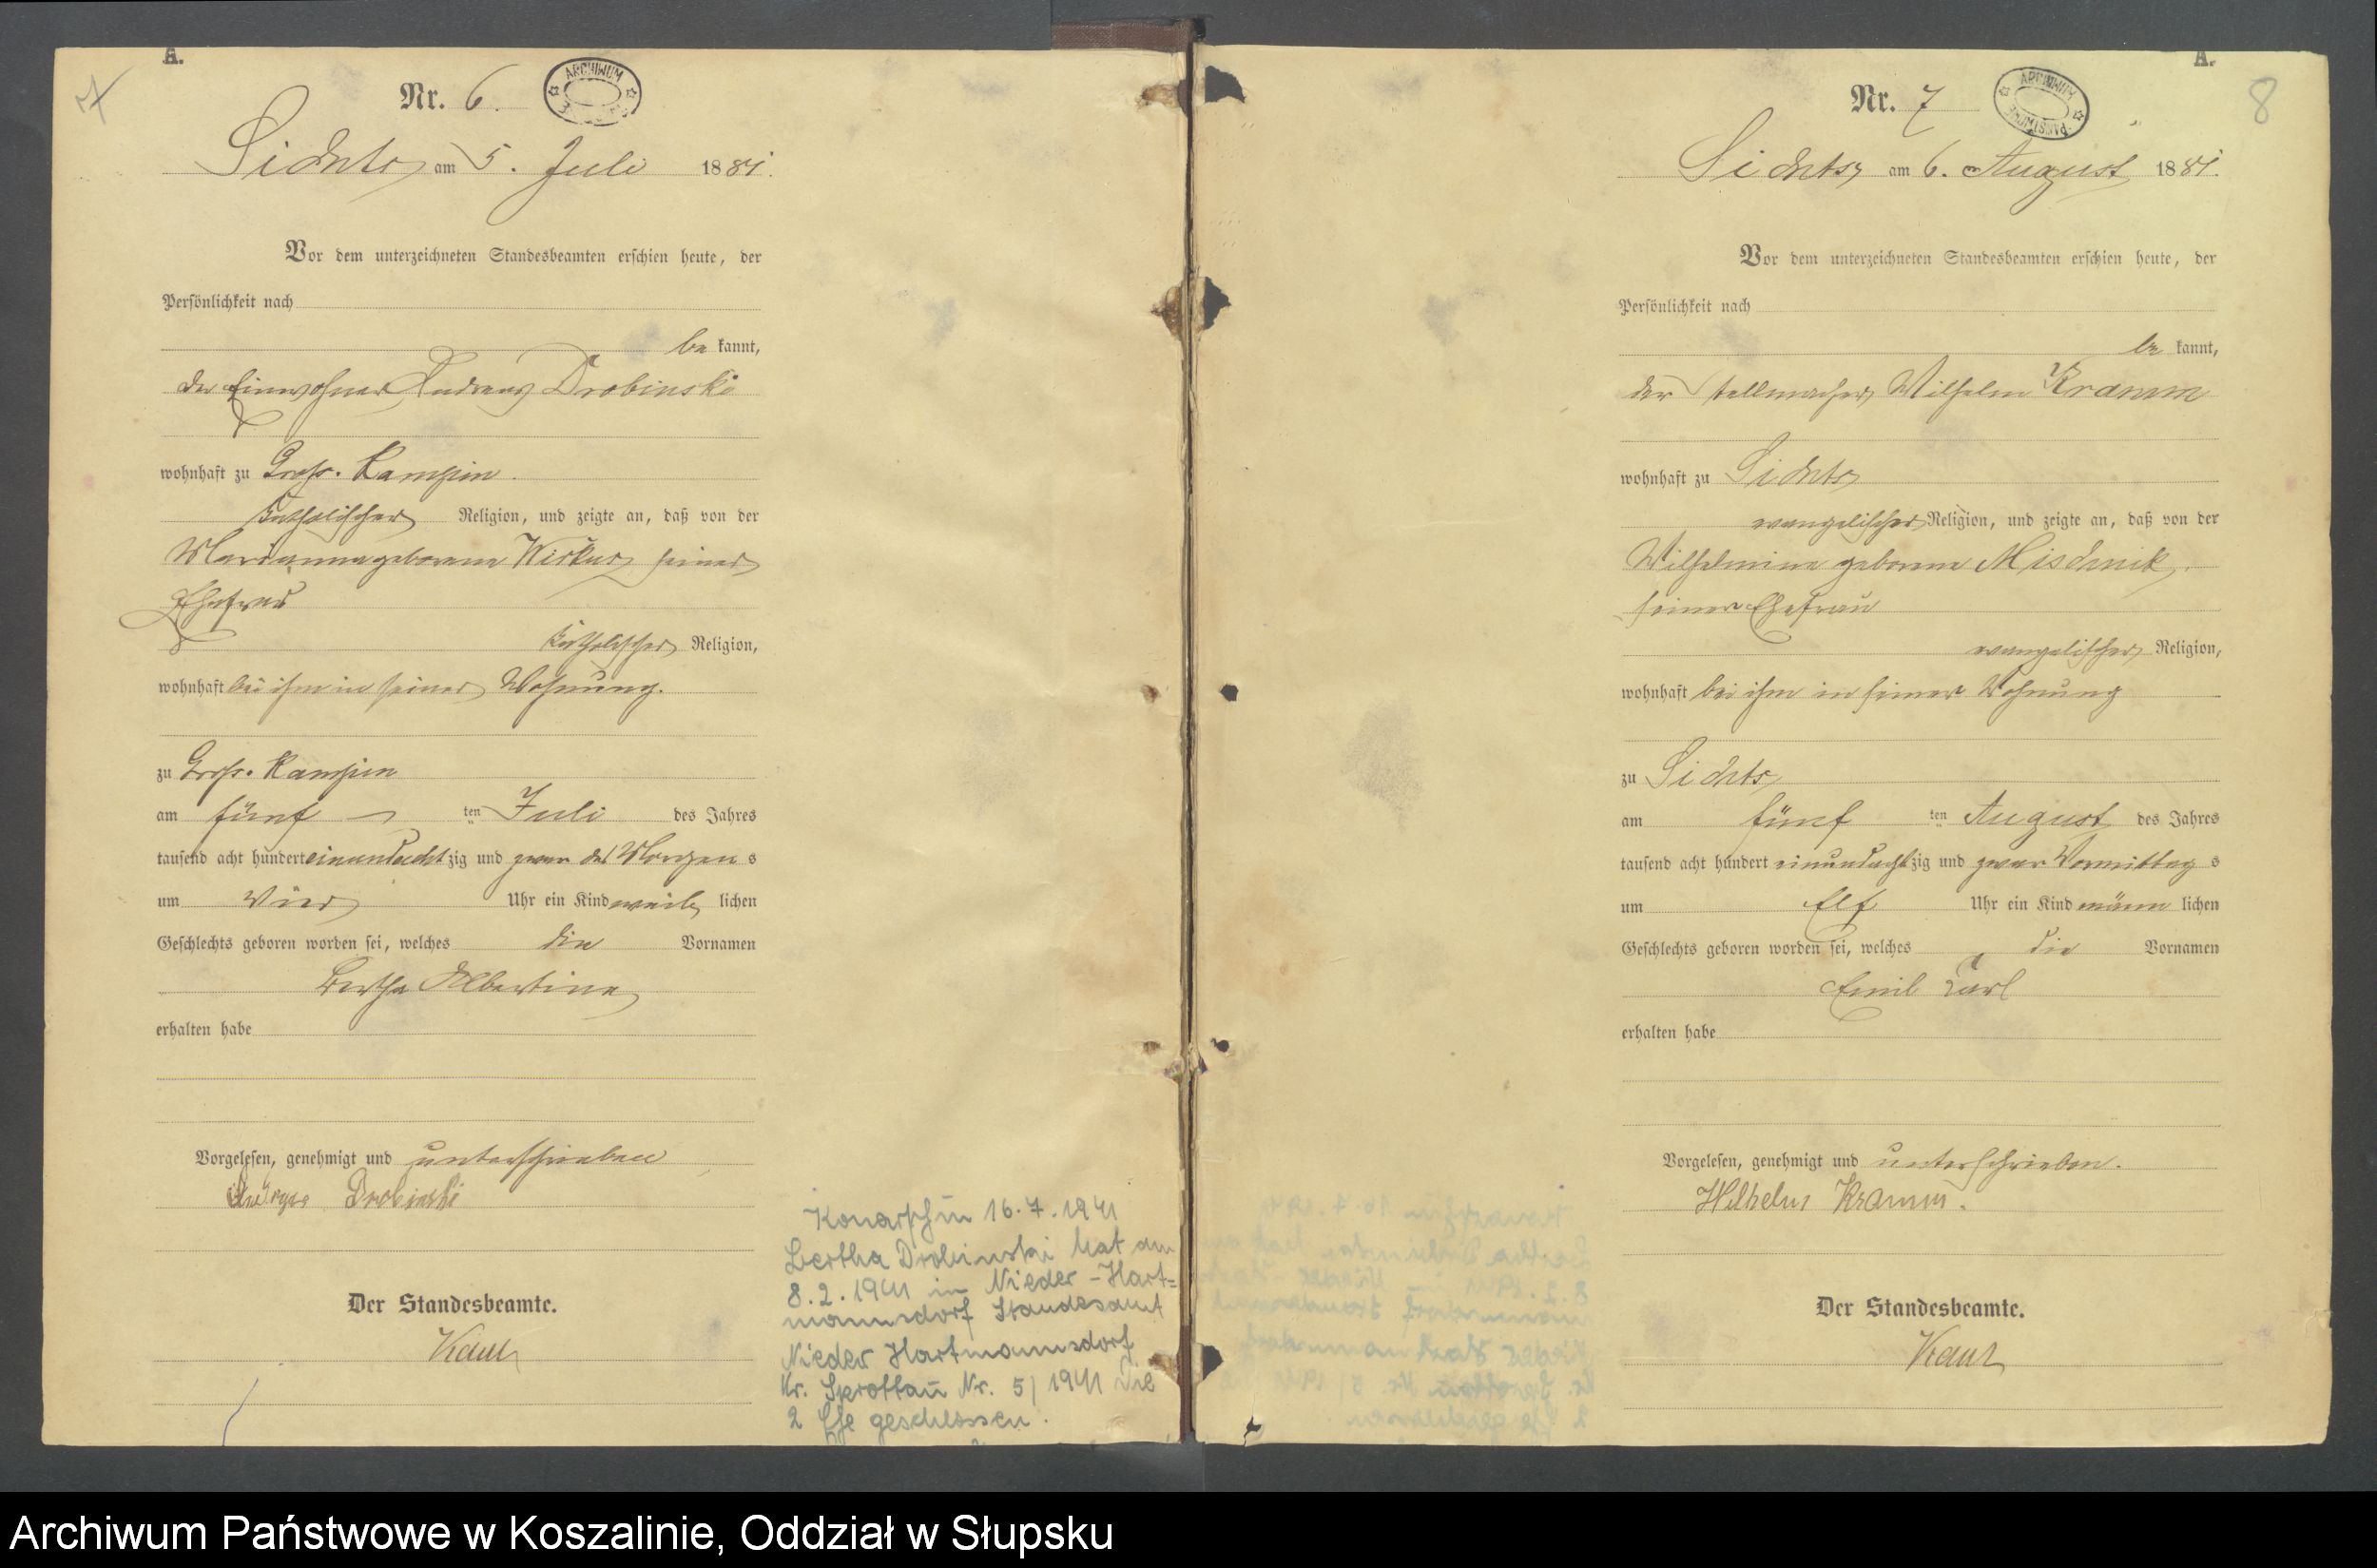 A.
7
Nr. 6.
ARCHIWUM
Sichts am 5. Juli 1881.
Vor dem unterzeichneten Standesbeamten erschien heute, der
Persönlichkeit nach
be kannt,
der Einwohner Andreas Drobinski
wohnhaft zu Groß. Karnßin
katholischer Religion, und zeigte an, daß von der
Marianna geborene Wirkus seiner
Ehefrau
katholischer Religion,
wohnhaft bei ihm in seiner Wohnung.
zu Groß. Karnßin
am fünf ten Juli des Jahres
tausend acht hundert einundachtzig und zwar des Morgens
um Vier Uhr ein Kind weiblichen
Geschlechts geboren worden sei, welches die Vornamen
Bertha Albertine
erhalten habe
Vorgelesen, genehmigt und unterschrieben
Drobinski
Der Standesbeamte.
Konarschin 16.7.1941
Bertha Drobinski hat am
8.2.1941 in Nieder-Hart=
mannsdorf Standesamt
Nieder Hartmannsdorf
Kr. Sprottau Nr. 5/1941 die
2 Ehe geschlossen.
A.
8
Nr. 7
ARCHIWUM PAŃSTWOWE
Sichts am 6. August 1881.
Vor dem unterzeichneten Standesbeamten erschien heute, der
Persönlichkeit nach
be kannt,
der Stellmacher Wilhelm Kramm
wohnhaft zu Sichts
evangelischer Religion, und zeigte an, daß von der
Wilhelmine geborene Mischnik,
seiner Ehefrau
evangelischer Religion,
wohnhaft bei ihm in seiner Wohnung
zu Sichts
am fünf ten August des Jahres
tausend acht hundert einundachtzig und zwar Vormittags
um Elf Uhr ein Kind männlichen
Geschlechts geboren worden sei, welches die Vornamen
Emil Carl
erhalten habe
Vorgelesen, genehmigt und unterschrieben.
Wilhelm Kramm.
Der Standesbeamte.
Archiwum Państwowe w Koszalinie, Oddział w Słupsku